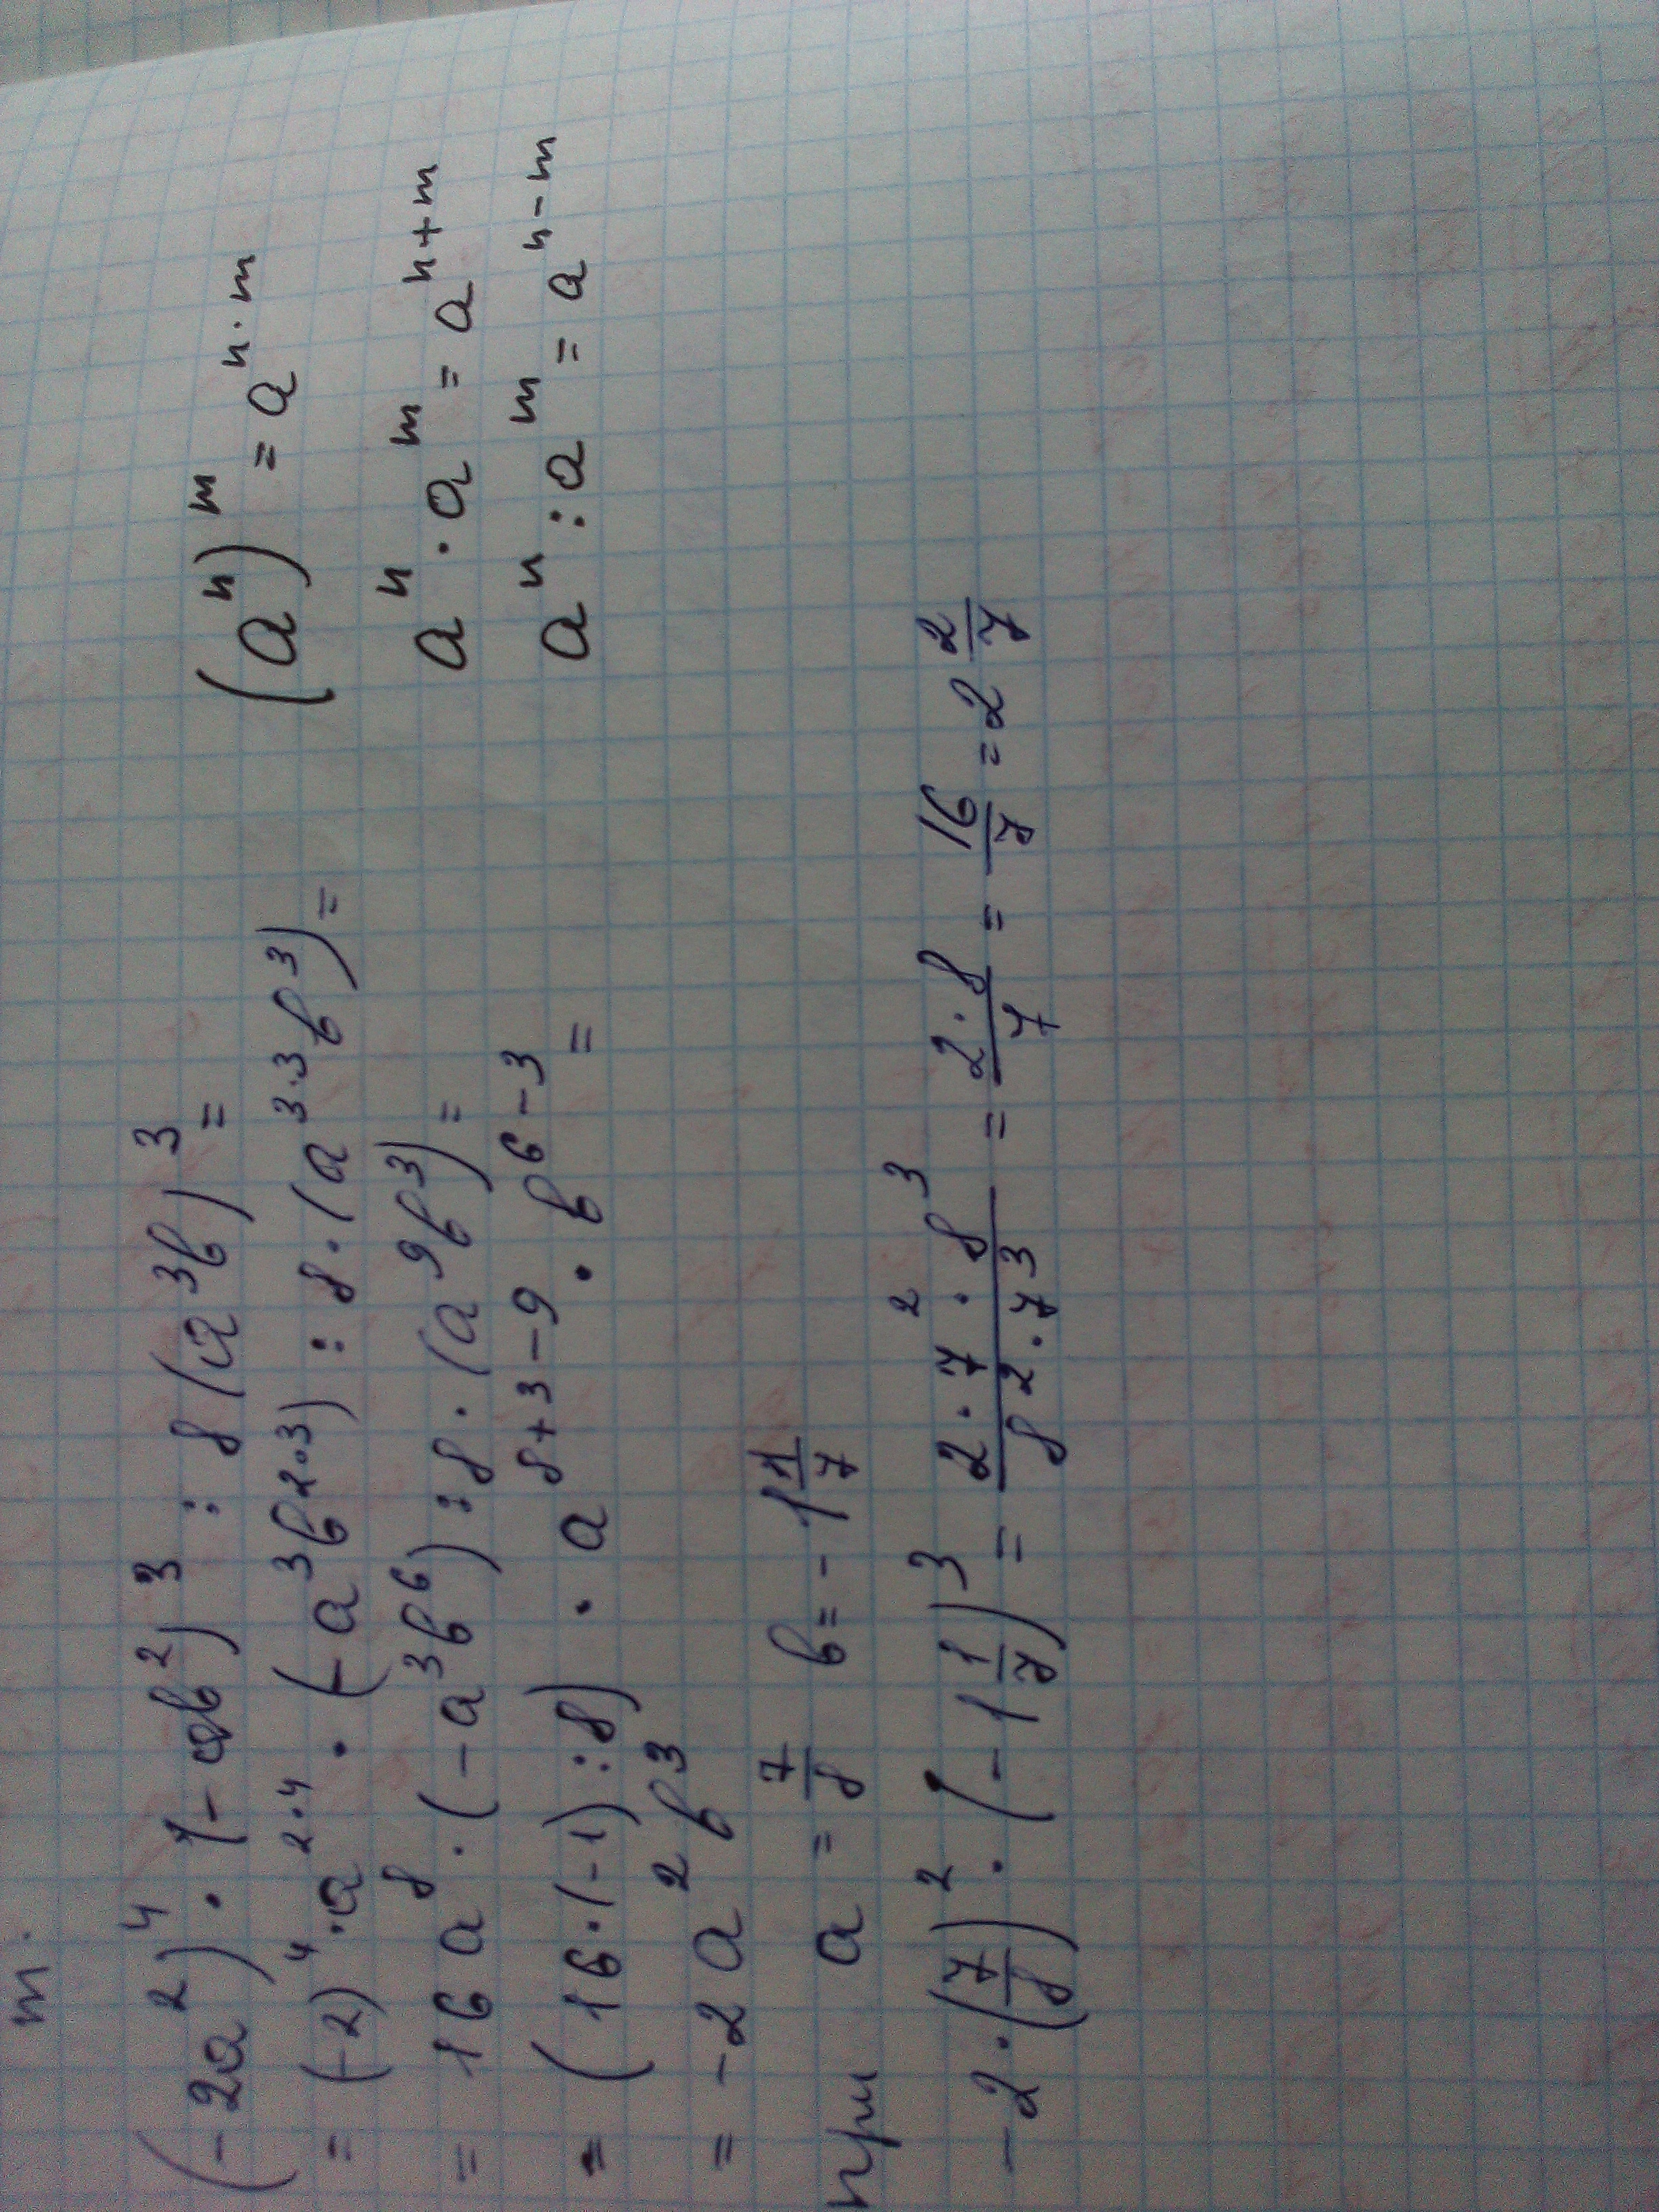 т.
(-2a²)⁴ · (-ab²)³ : 8(a³b)³ =
= (-2)⁴ · a²·⁴ · (-a³b²·³) : 8 · (a³·³b³) =
= 16a⁸ · (-a³b⁶) : 8 · (a⁹b³) =
= (16 · (-1) : 8) · a⁸⁺³⁻⁹ · b⁶⁻³ =
= -2a²b³
при a = 7/8 b = -1 1/7
-2 · (7/8)² · (-1 1/7)³ = (2 · 7² · 8³)/(8² · 7³) = (2 · 8)/7 = 16/7 = 2 2/7
(aⁿ)ᵐ = aⁿ·ᵐ
aⁿ · aᵐ = aⁿ⁺ᵐ
aⁿ : aᵐ = aⁿ⁻ᵐ